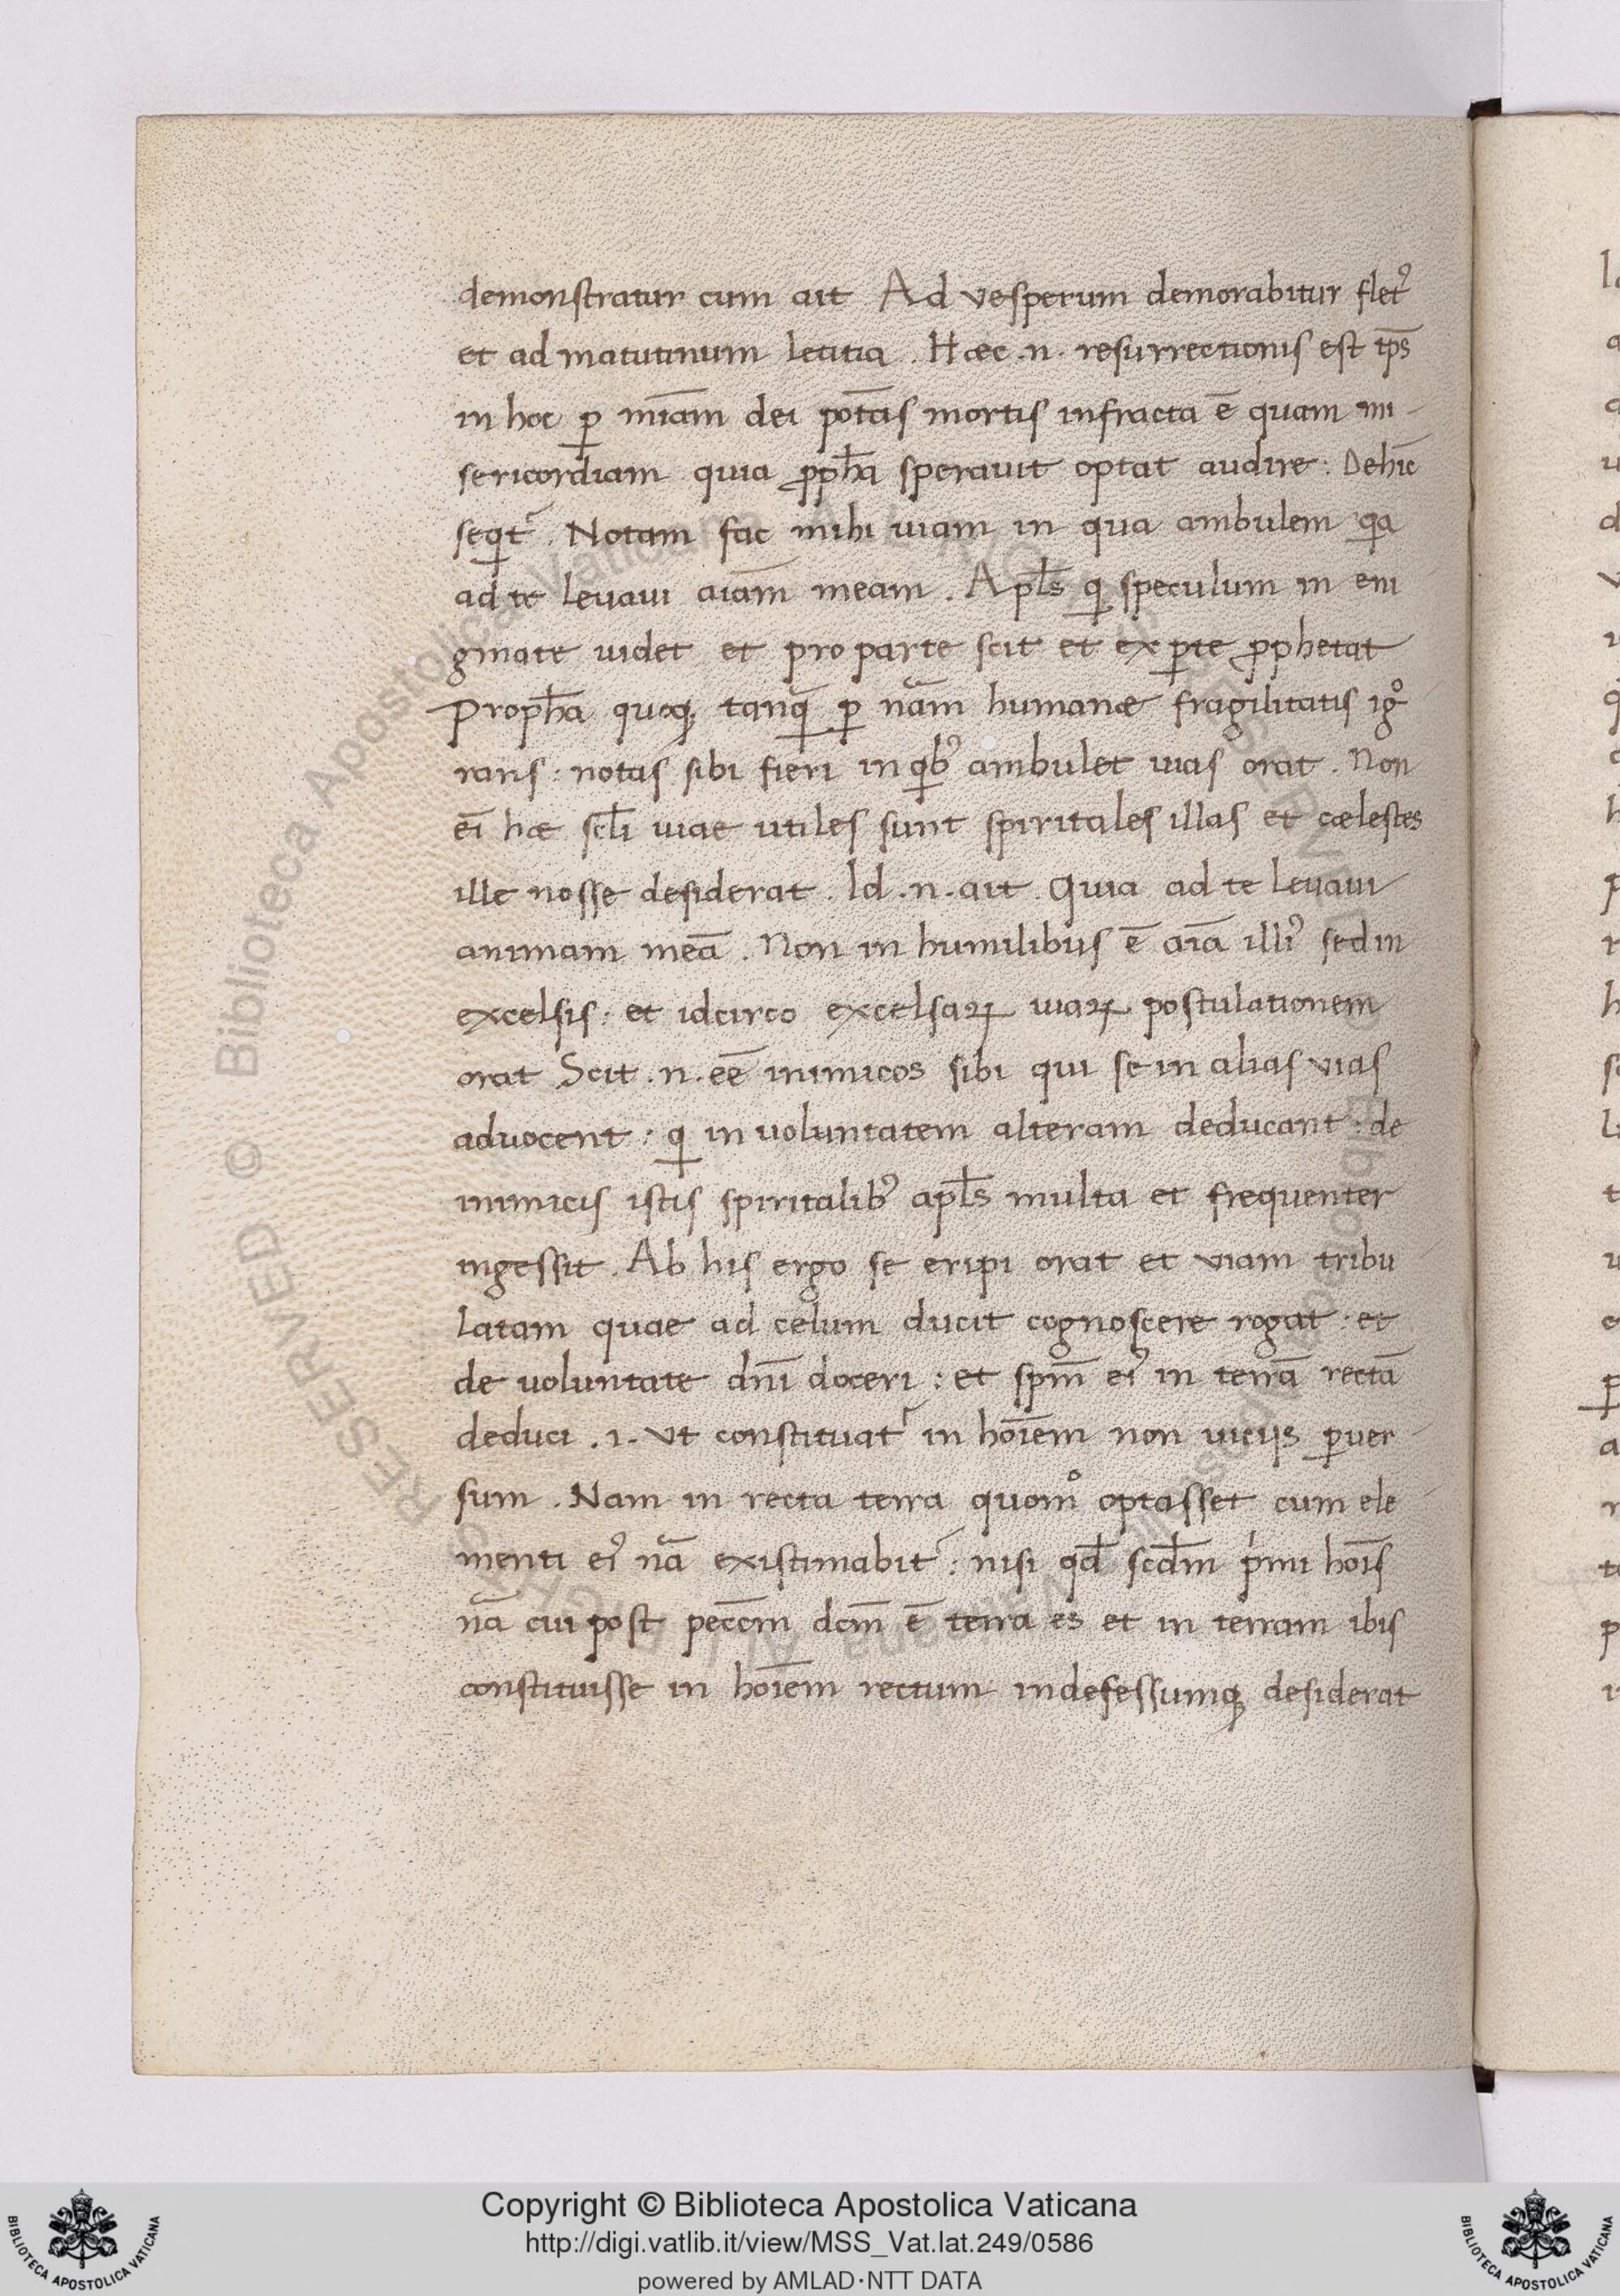 demonstratur cum ait Ad vesperum demorabitur flet᾽
et ad matutinum letitia . Haec .n. resurrectionis est tp̄s
in hoc ꝑ miām dei potās mortis infracta ē quam mi-
sericordiam quia ꝓph̄a sperauit optat audire : Dehīc
seqit᾽ . Notam fac mihi uiam in qua ambulem qa
ad te leuaui aiām meam . Apl̄s q speculum in eni
gmate uidet et pro parte scit et ex ꝑte ꝓphetat
Proph̄a quoq; tanq̄ ꝑ nām humanae fragilitatis igº
rans : notas sibi fieri in qb᾽ ambulet uias orat . Non
ei hae scl̄i uiae utiles sunt spiritales illas et caelestes
ille nosse desiderat . Id .n. ait Quia ad te leuaui
animam meā . Non in humilibus ē aīa illi᾽ sed in
excelsis : et idcirco excelsaꝝ uiaꝝ postulationem
orat Scit .n. eē inimicos sibi qui se in alias vias
aduocent : q in uoluntatem alteram deducant : de
inimicis istis spiritalib᾽ apl̄s multa et frequenter
ingessit . Ab his ergo se eripi orat et viam tribu
latam quae ad celum ducit cognoscere rogat : et
de uoluntate dn̄i doceri : et spm̄ ei᾽ in terrā rectā
deduci .i. vt constituat᾽ in hoīem non uicijs ꝑuer
sum . Nam in recta terra quomº optasset cum ele
menti ei᾽ nā existimabit᾽ : nisi qd̄ scd̄m pͥmi hoīs
nā cui post peccm̄ dcm̄ ē terra es et in terram ibis
constituisse in hoīem rectum indefessumq; desiderat
Copyright © Biblioteca Apostolica Vaticana
http://digi.vatlib.it/view/MSS_Vat.lat.249/0586
powered by AMLAD·NTT DATA